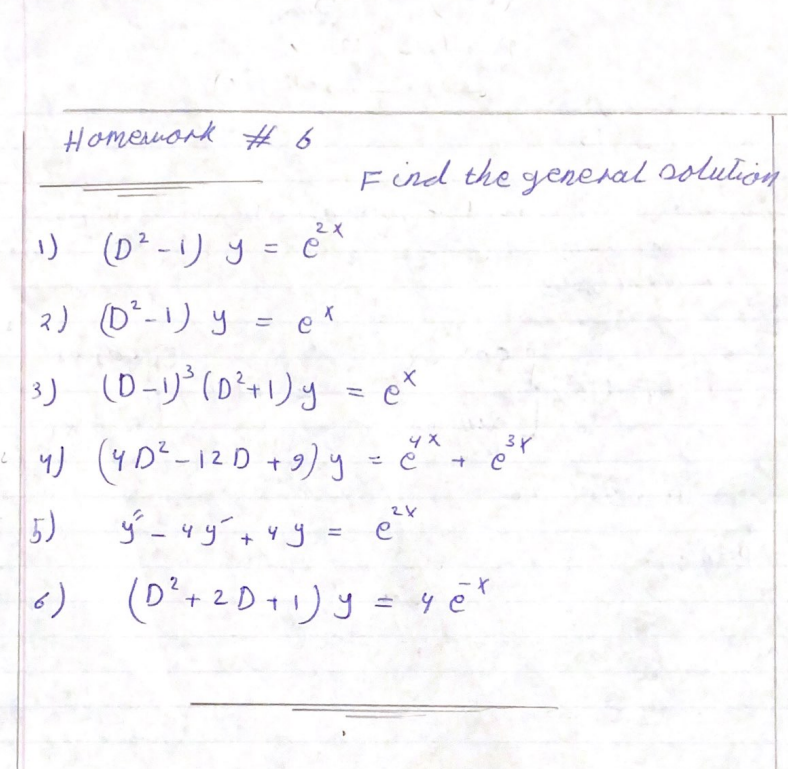 Homework # 6
Find the general solution
1) (D² - 1) y = e^{2x}
2) (D² - 1) y = e^x
3) (D - 1)³ (D² + 1) y = e^x
4) (4D² - 12D + 9) y = e^{4x} + e^{3x}
5) y'' - 4y' + 4y = e^{2x}
6) (D² + 2D + 1) y = 4 e^{-x}